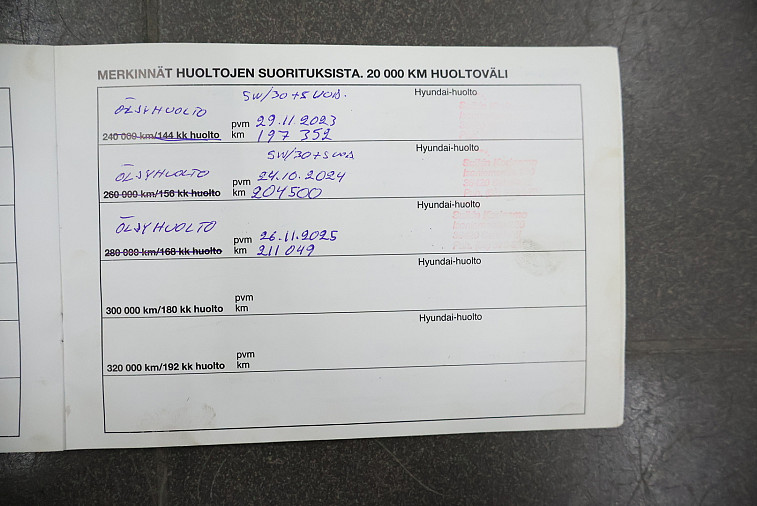 MERKINNÄT HUOLTOJEN SUORITUKSISTA. 20 000 KM HUOLTOVÄLI
5W/30 + SUOD. Hyundai-huolto
ÖLJYHUOLTO
pvm 29.11.2023
240 000 km/144 kk huolto km 197 352
5W/30 + SUOD Hyundai-huolto
ÖLJYHUOLTO
pvm 24.10.2024
260 000 km/156 kk huolto km 204500
Hyundai-huolto
ÖLJYHUOLTO
pvm 26.11.2025
280 000 km/168 kk huolto km 211 049
Hyundai-huolto
pvm
300 000 km/180 kk huolto km
Hyundai-huolto
pvm
320 000 km/192 kk huolto km